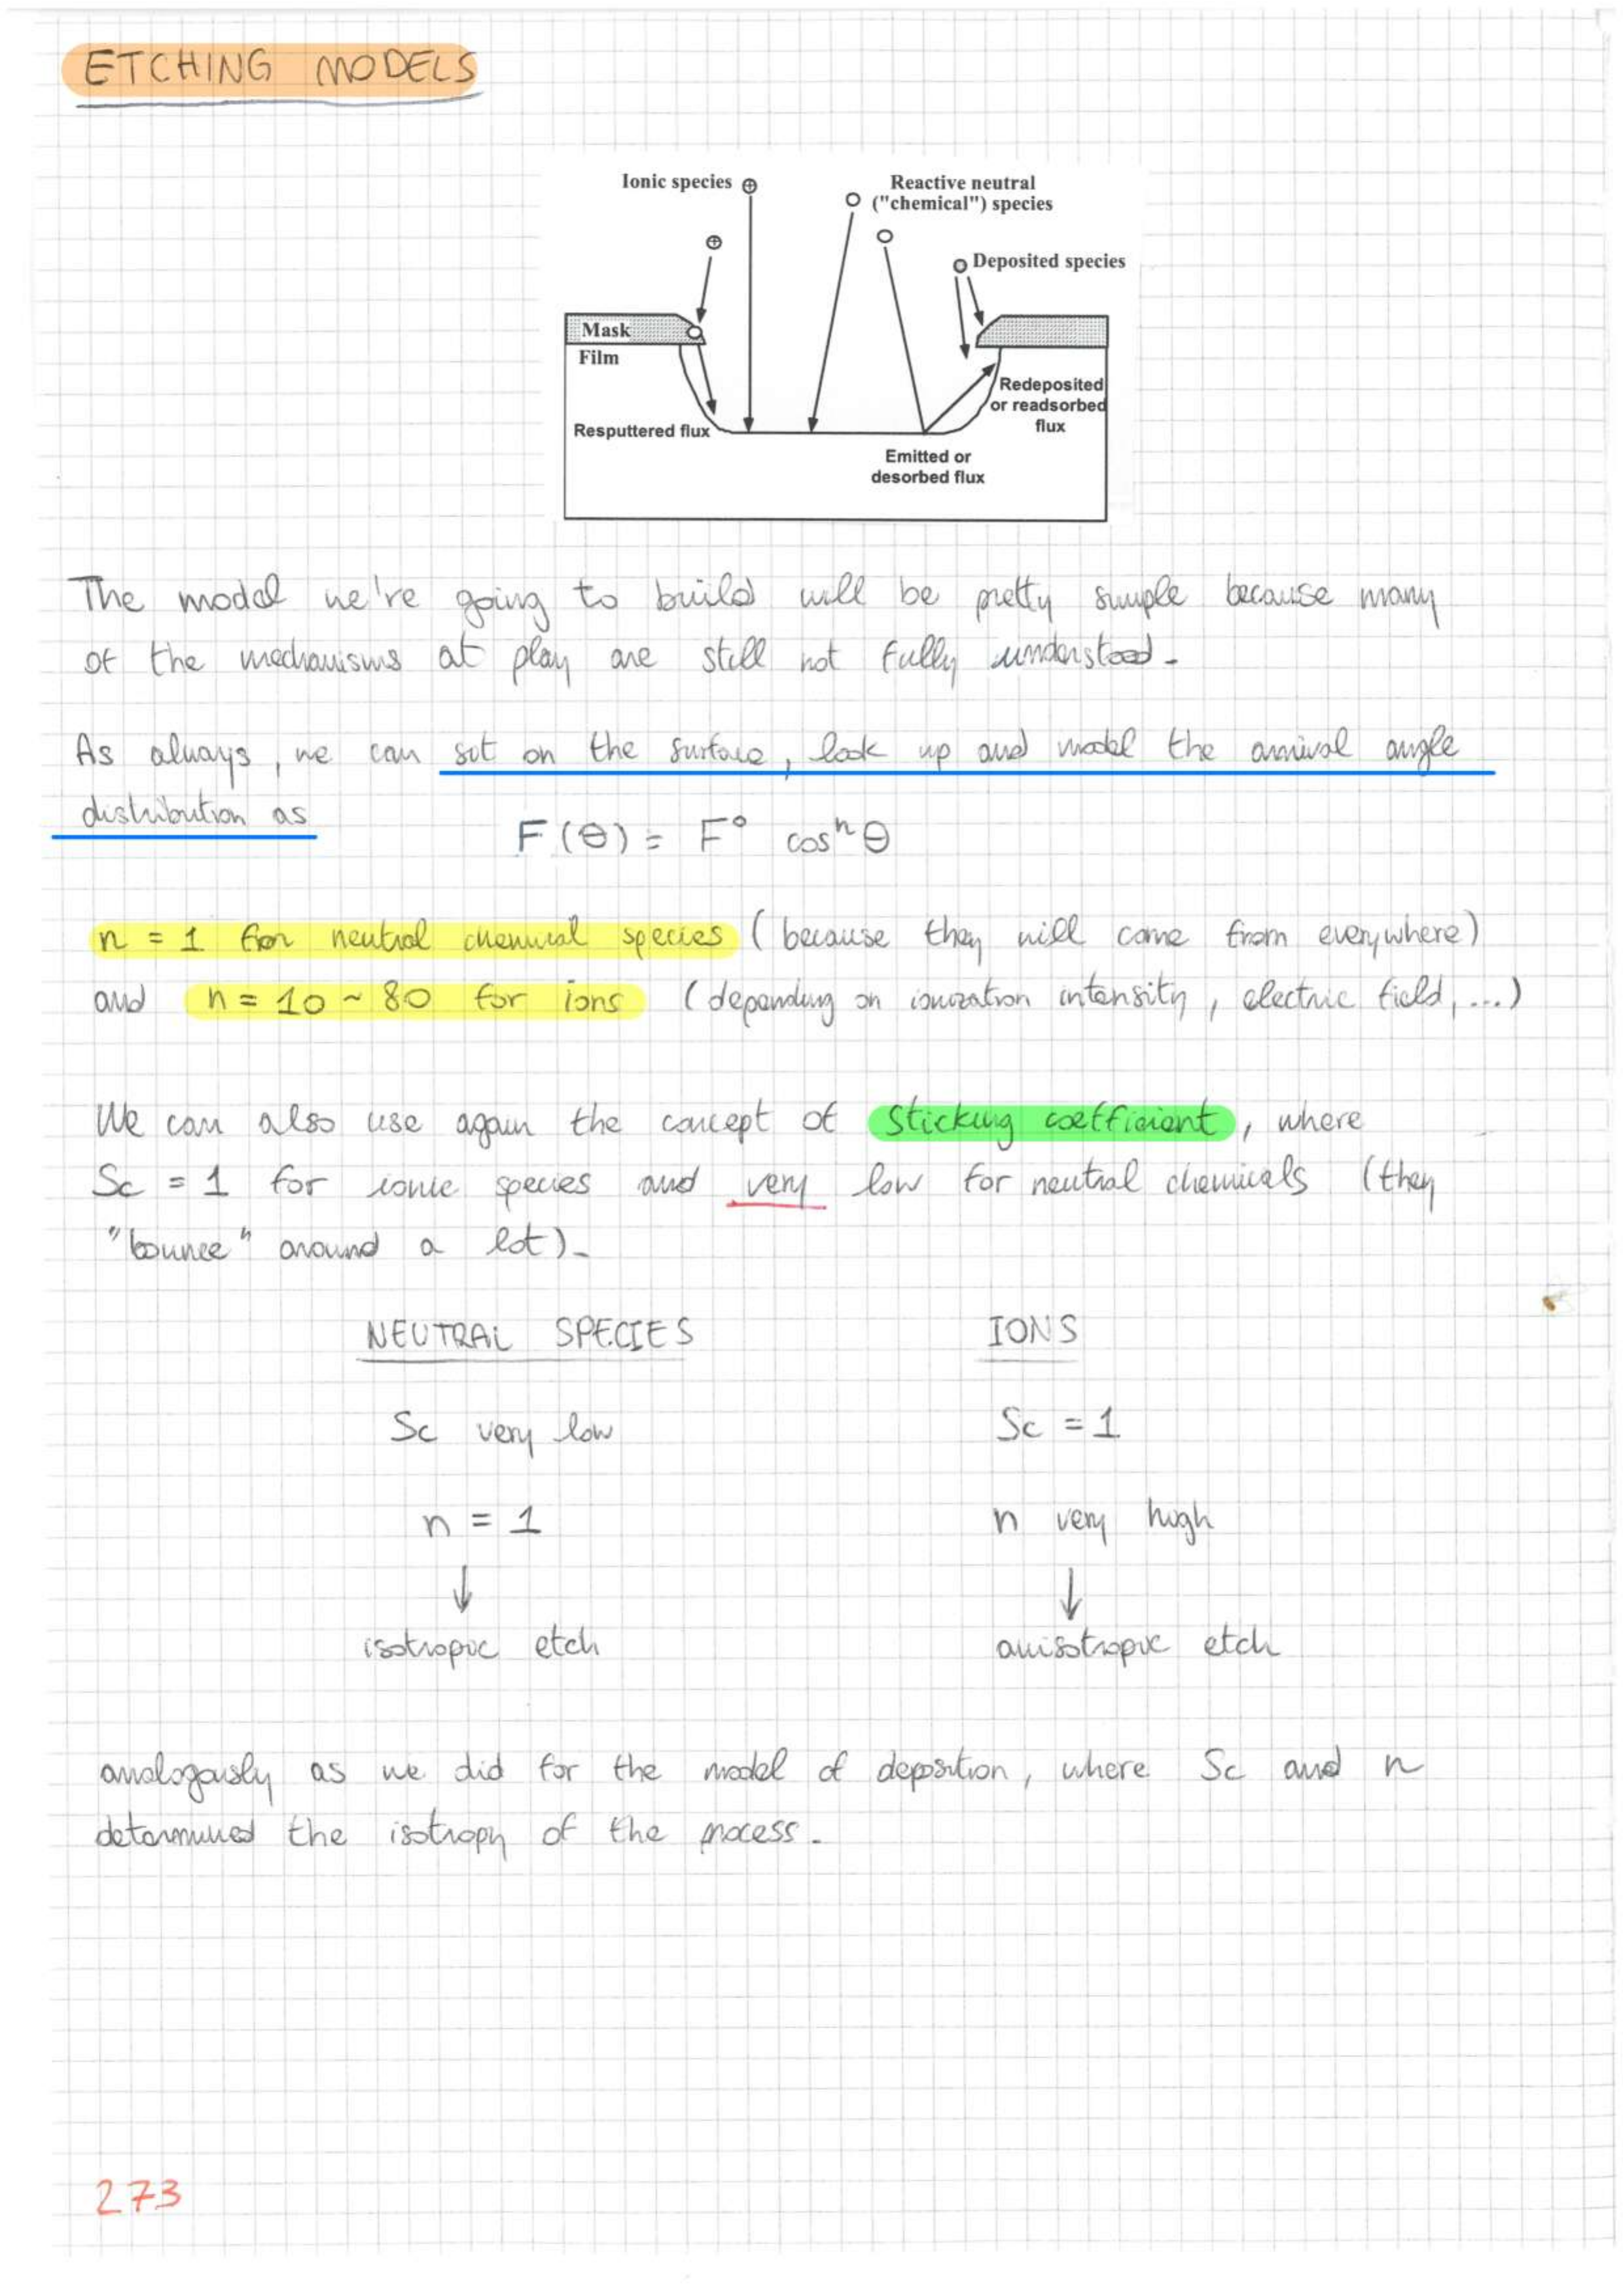 ETCHING MODELS
Ionic species
Reactive neutral
("chemical") species
Deposited species
Mask
Film
Redeposited
or readsorbed
flux
Resputtered flux
Emitted or
desorbed flux
The model we're going to build will be pretty simple because many
of the mechanisms at play are still not fully understood.
As always, we can sit on the surface, look up and model the arrival angle
distribution as
F(θ) = F° cosⁿθ
n = 1 for neutral chemical species (because they will come from everywhere)
and n = 10 ~ 80 for ions (depending on ionization intensity, electric field, ...)
We can also use again the concept of sticking coefficient, where
Sc = 1 for ionic species and very low for neutral chemicals (they
"bounce" around a lot).
NEUTRAL SPECIES IONS
Sc very low Sc = 1
n = 1 n very high
↓ ↓
isotropic etch anisotropic etch
analogously as we did for the model of deposition, where Sc and n
determined the isotropy of the process.
273